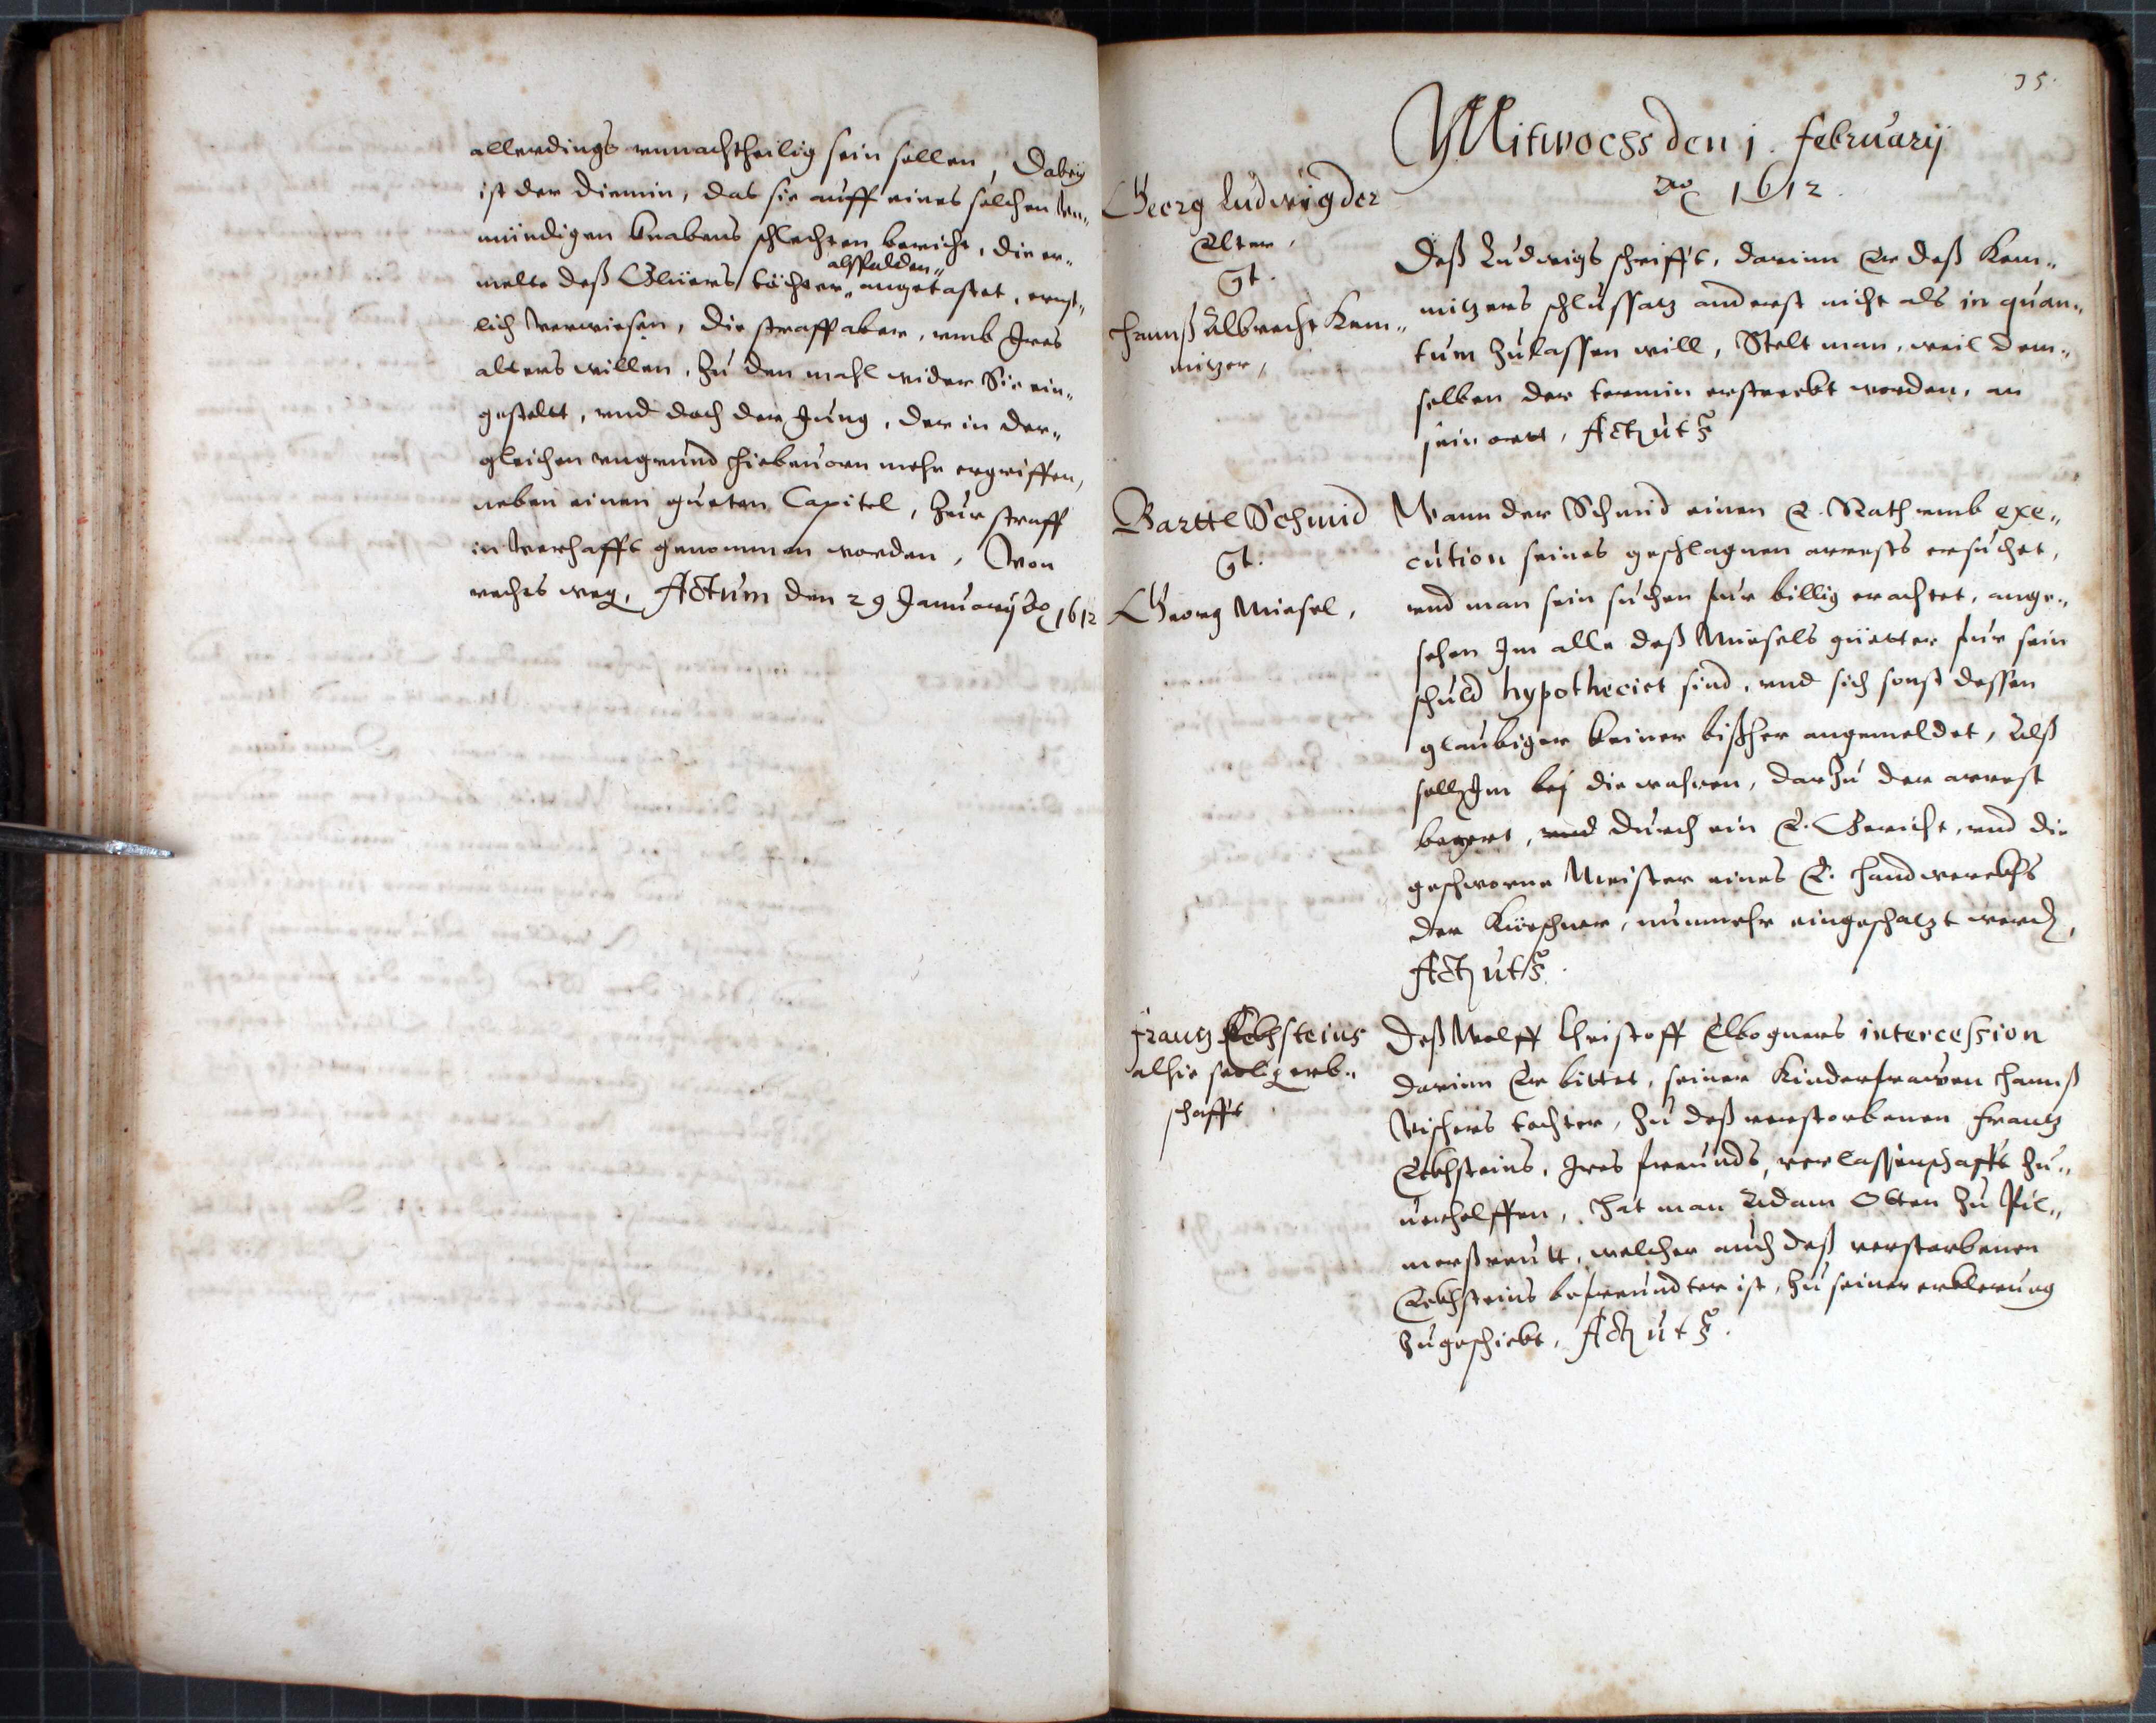 allerdings vnnachtheilig sein sollen, Dabey
ist der Diernin, das sie auff eines solchen Vn„
mündigen knabens schlechten bericht, die er„
melte deß Glüers töchter angetastet, ernst„
alßbalden„
lich verwiesen, die straff aber, vmb Ires
alters willen, zu den mahl wider Sie ein„
gestellt, vnd doch der Jung, der in der„
gleichen vngrund hiebeuorn mehr ergriffen,
neben einen gueten Capitel, zur straff
in verhafft genommen worden, Von
rechts weg, Actum den 29 January Ao 1612
35.
Mitwochs den 1. February
Ao 1612.
Georg Ludwig der
Elter,
Ct.
Hannß Albrecht Kem„
nitzer,
Deß Ludwigs schrifft, darinn Er deß Kem„
nitzers schlussatz anderst nicht als in quan„
tum zulassen will, Stelt man, weil dem„
selben der termin erstreckt worden, an
sein ortt, Act ut s
Barttl Schmid
Ct.
Georg Miesel,
Wann der Schmid einen E. Rath vmb exe„
cution seines geschlagnen arrests ersuchet,
vnd man sein suchen fur billig erachtet, ange„
sehen Im alle deß Miesels güetter fur sein
schuld hypotheciet sind, vnd sich sonst dessen
glaubiger keiner bißher angemeldet, Alß
soll Im bej die wahren, darzu der arrest
begert, durch ein E. Gericht, vnd die
geschworne Meister eines E. Handwerckhs
der Kürschner, nunmehr eingeschatzt werd,
Act ut s.
Frantz Eckhsteins
alhie seelig erb„
schafft
Deß Wolff Christoff Elbogners intercession
darinn Er bittet, seiner Kinderfrawen Hannß
Vischers tochter, zu deß verstorbenen Frantz
Eckhsteins, Ires freunds, verlassenschafft zu„
uerhelffen, Hat man Adam Otten zu Pil„
merßreutt, welcher auch deß verstorbenen
Eckhsteins befreundter ist, zu seiner erklerung
zugeschickt, Act ut s.